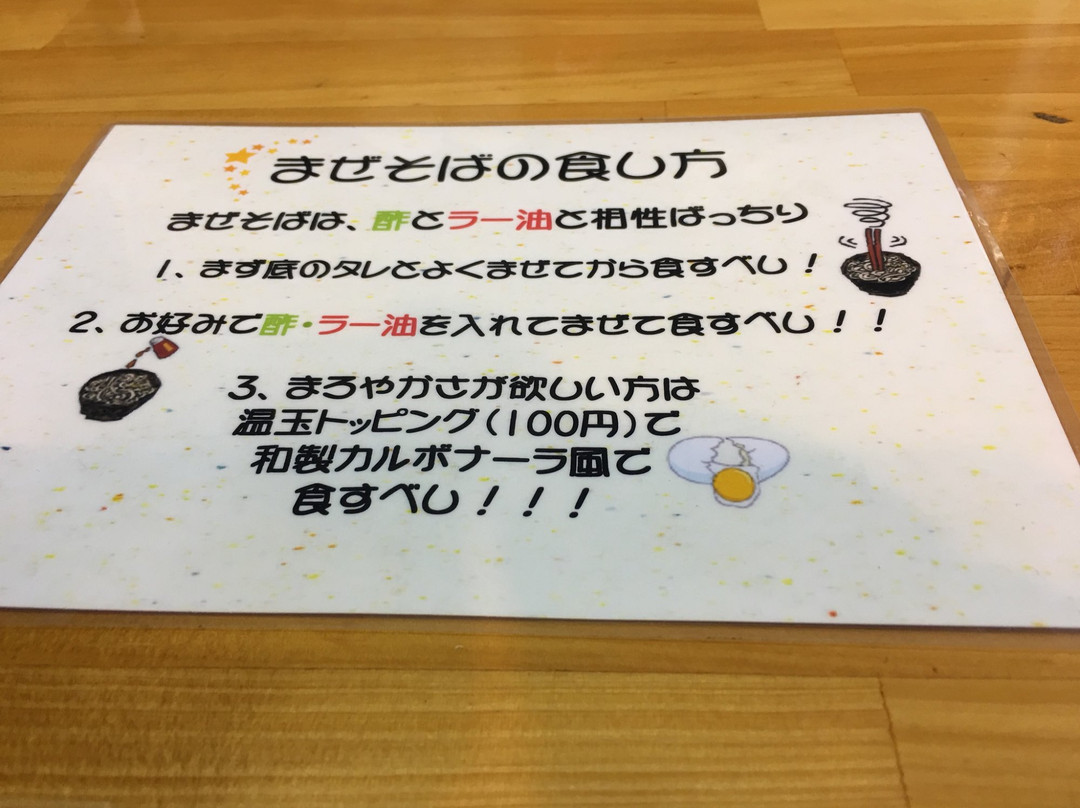 まぜそばの食し方
まぜそばは、酢とラー油と相性ばっちり
1、まず底のタレとよくまぜてから食すべし！
2、お好みで酢・ラー油を入れてまぜて食すべし！！
3、まろやかさが欲しい方は
温玉トッピング(100円)で
和製カルボナーラ風で
食すべし！！！